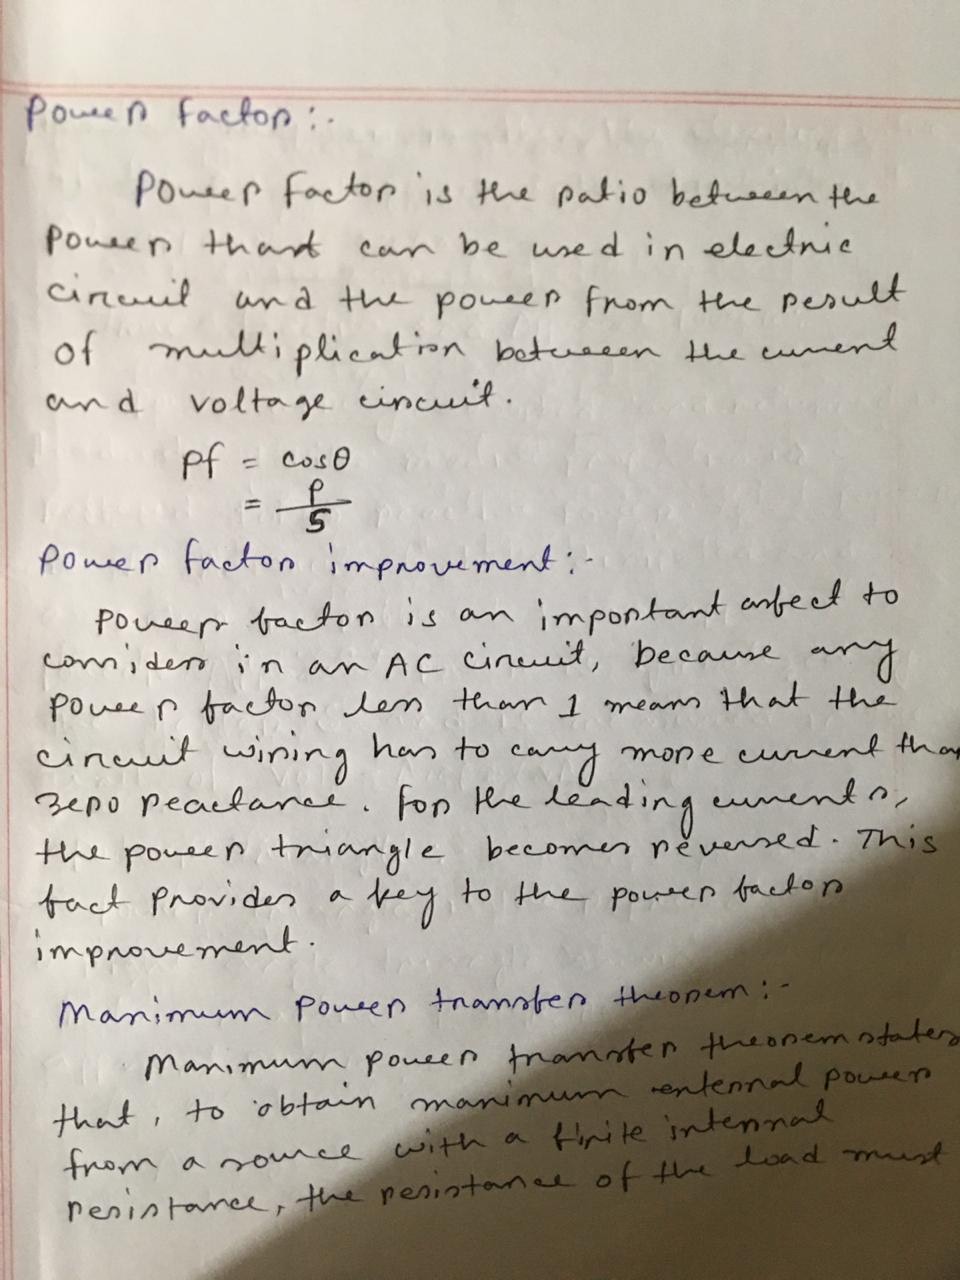 Power factor:-
Power factor is the ratio between the
power that can be used in electric
circuit and the power from the result
of multiplication between the current
and voltage circuit.
Pf = cosθ
= P/S
Power factor improvement:-
Power factor is an important asfect to
consider in an AC circuit, because any
power factor less than 1 means that the
circuit wiring has to carry more current than
zero reactance. for the leading currents,
the power triangle becomes reversed. This
fact provides a key to the power factor
improvement.
Maximum Power transfer theorem:-
Maximum power transfer theorem states
that, to obtain maximum external power
from a source with a finite internal
resistance, the resistance of the load must